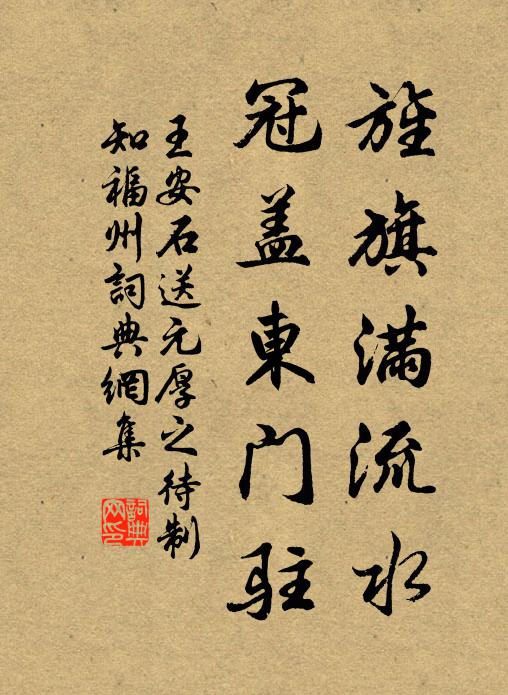 旌旗滿流水
冠盖東门驻
王安石送元厚之待制
知福州詞典網集
詞典网印